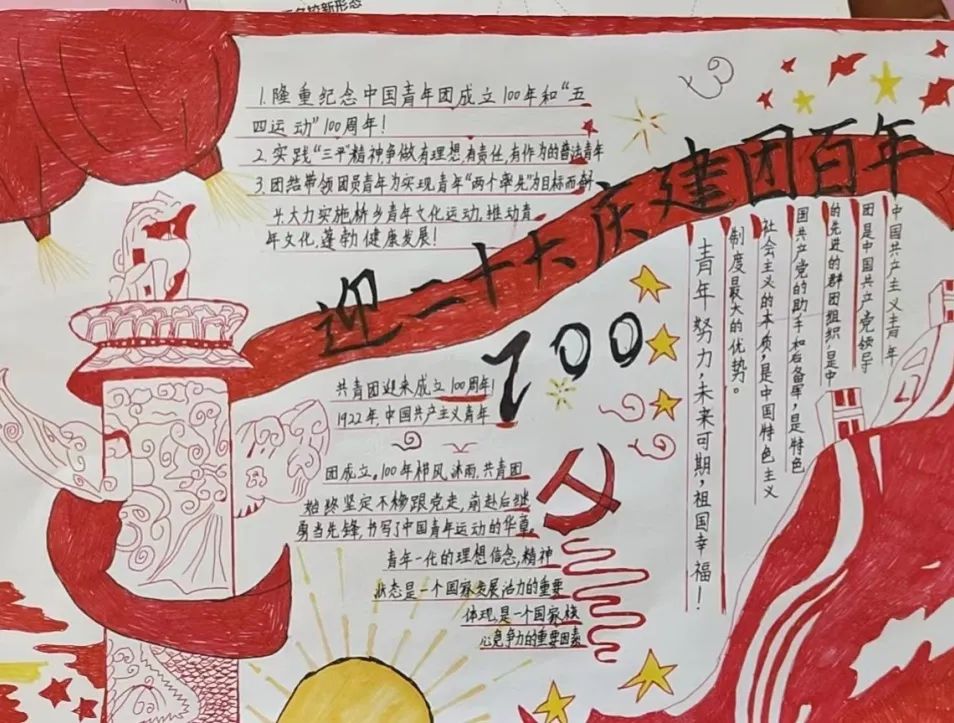 名校新形态
1.隆重纪念中国青年团成立100年和“五
四运动”100周年!
2.实践“三平”精神争做有理想,有责任,有作为的普法青年
3.团结带领团员青年为实现青年“两个率先”为目标而奋
斗大力实施桥乡青年文化运动,推动青
年文化,蓬勃健康发展!
迎二十大庆建团百年
100
共青团迎来成立100周年!
1922年,中国共产主义青年
团成立。100年栉风沐雨,共青团
始终坚定不移跟党走,前赴后继
勇当先锋,书写了中国青年运动的华章。
青年一代的理想信念,精神
状态是一个国家发展活力的重要
体现,是一个国家核
心竞争力的重要因素
中国共产主义青年
团是中国共产党领导
的先进的群团组织,是中
国共产党的助手和后备军,是特色
社会主义的本质,是中国特色主义
制度最大的优势。
青年努力,未来可期,祖国幸福!